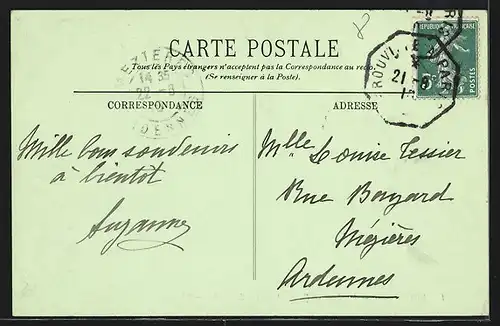 CARTE POSTALE
Tous les Pays étrangers n'acceptent pas la Correspondance au recto
(Se renseigner à la Poste).
CORRESPONDANCE
ADRESSE
Mille bons souvenirs
à bientot
Suzanne
Mlle Louise Tessier
Rue Bayard
Mézières
Ardennes
TROUVILLE A PARIS
21
14 35
22 - 8